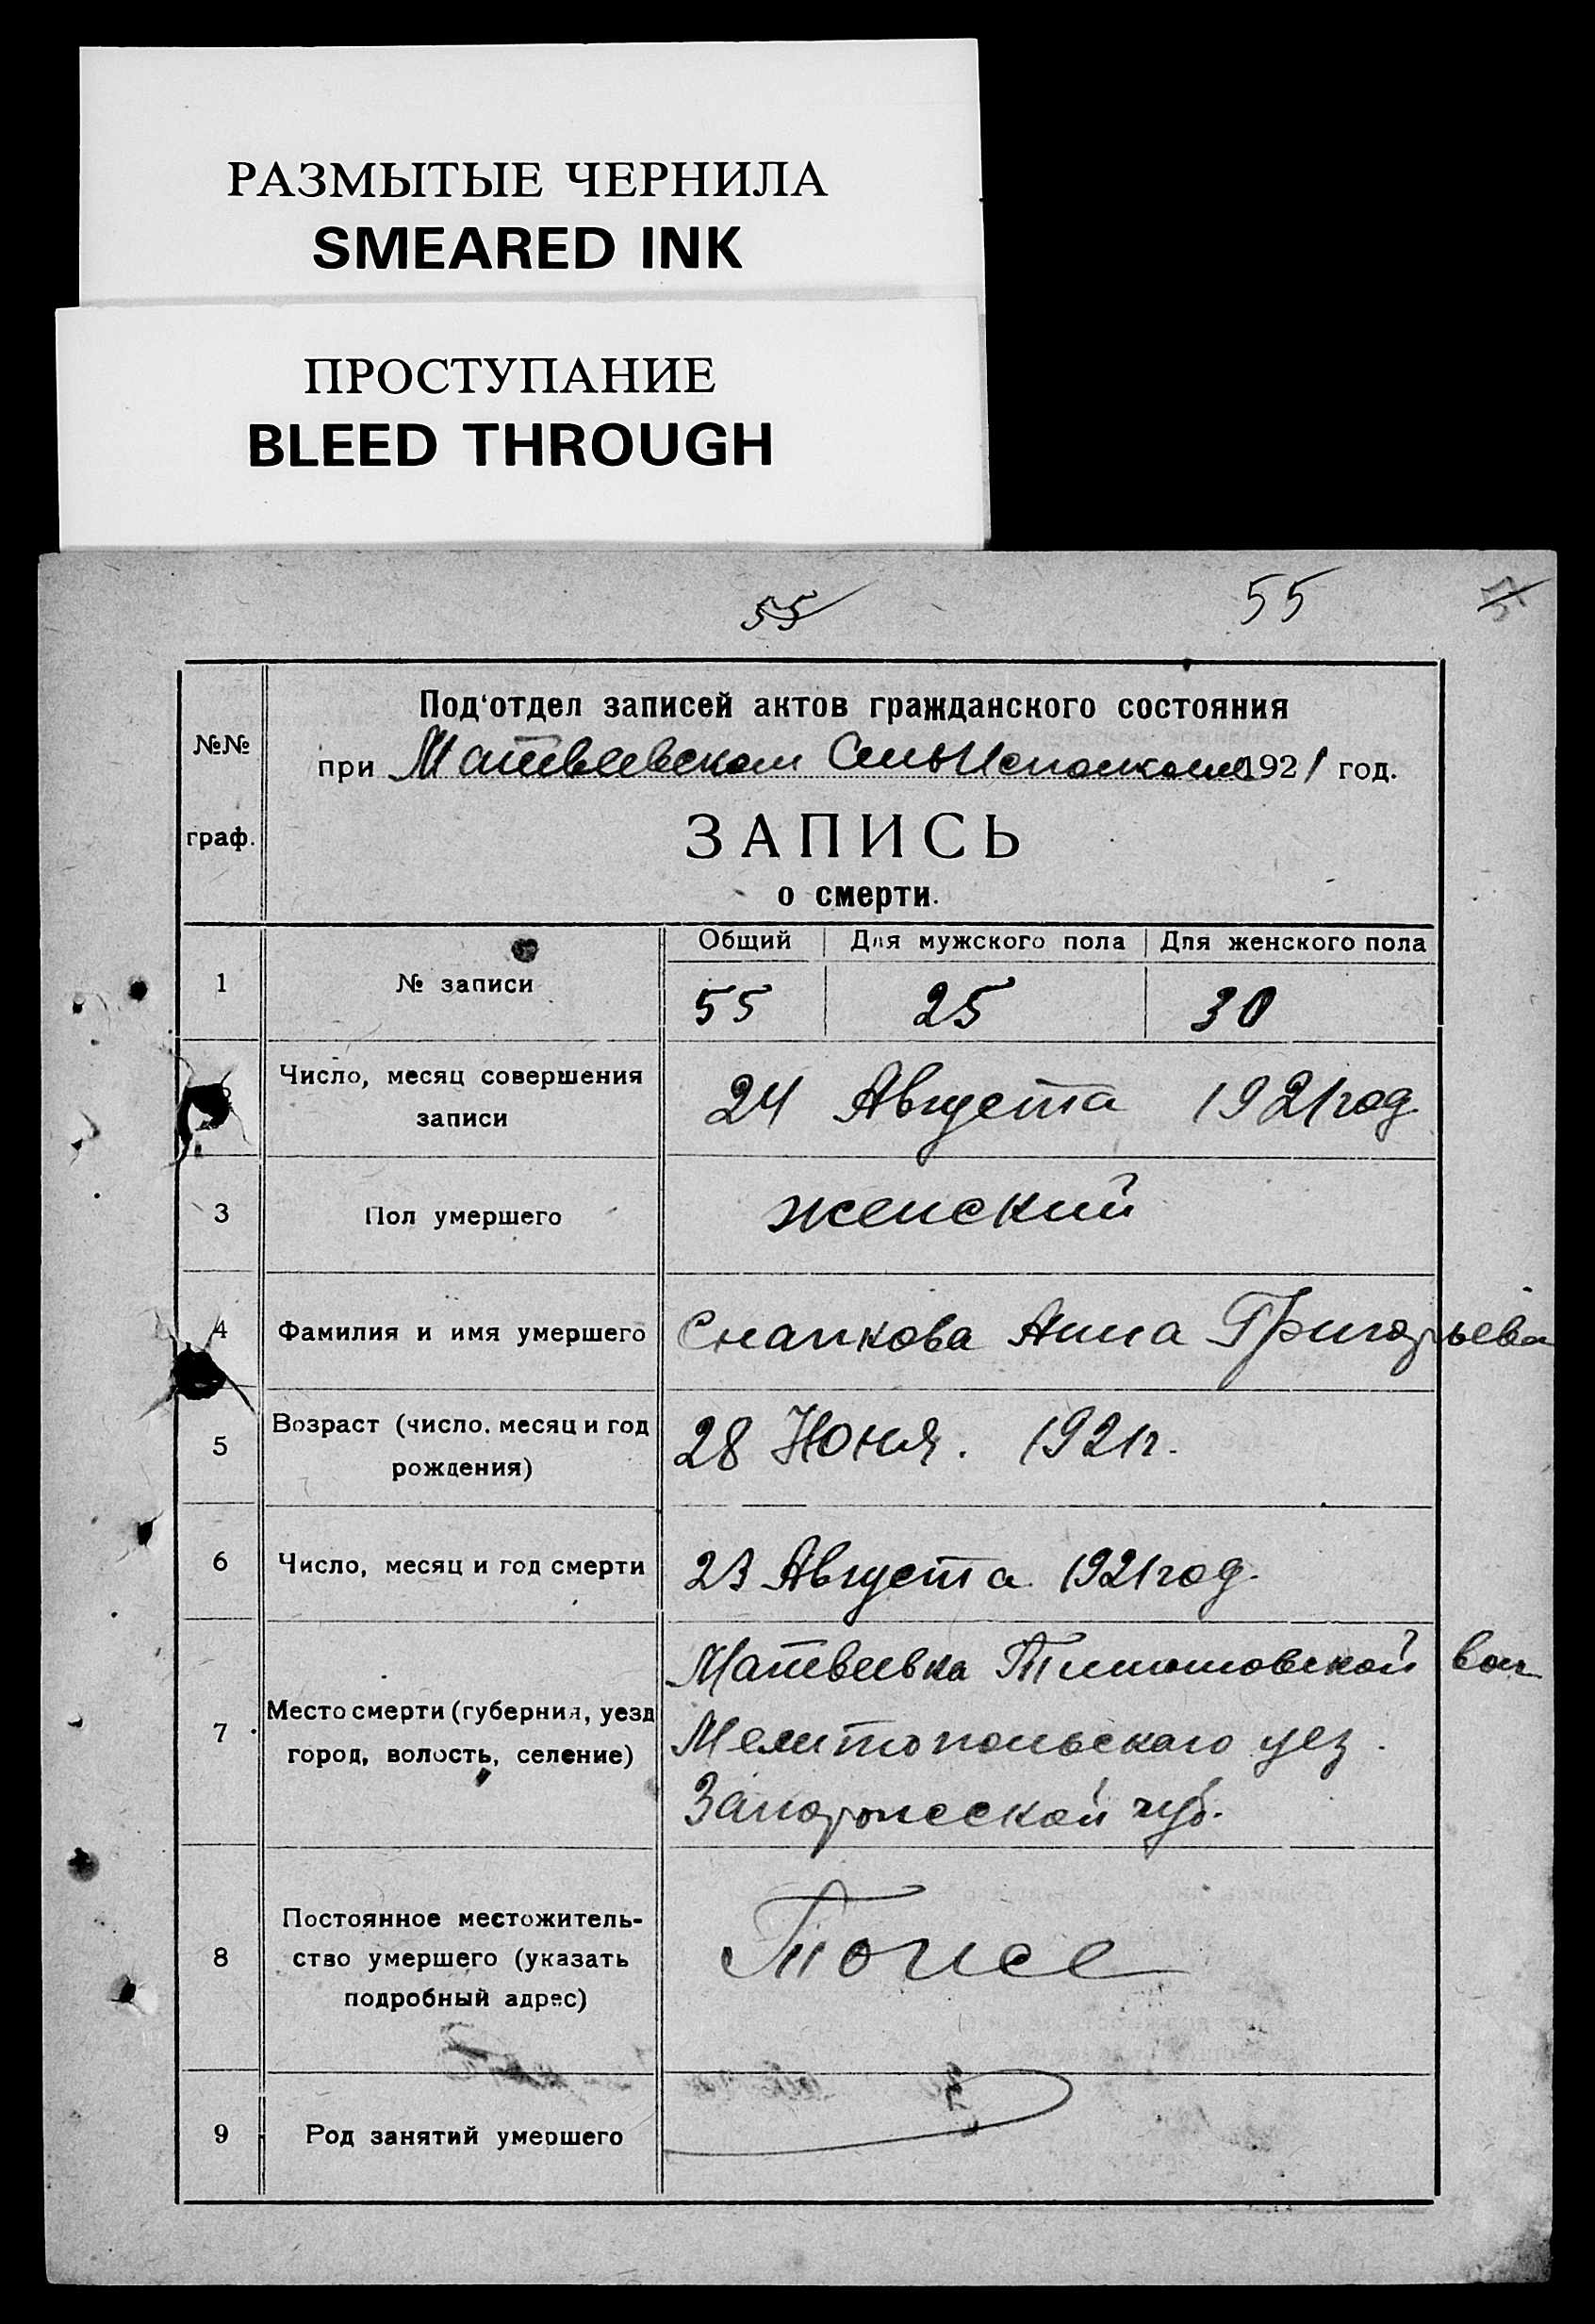 РАЗМЫТЫЕ ЧЕРНИЛА
SMEARED INK
ПРОСТУПАНИЕ
BLEED THROUGH
55 55
Под'отдел записей актов гражданского состояния
№№
при Матвеевском СельИсполкоме 1921 год.
граф.
ЗАПИСЬ
о смерти.
Общий Для мужского пола Для женского пола
1 № записи 55 25 30
Число, месяц совершения
записи
24 Августа 1921 год
3 Пол умершего женский
4 Фамилия и имя умершего Анна Григорьева
5 Возраст (число, месяц и год
рождения)
28 Июня. 1921 г.
6 Число, месяц и год смерти 23 Августа 1921 год.
7 Место смерти (губерния, уезд
город, волость, селение)
Матвеевка Тимошовской вол
Мелитопольскаго уез.
Запорожской губ.
8 Постоянное местожитель-
ство умершего (указать
подробный адрес)
Тоже
9 Род занятий умершего